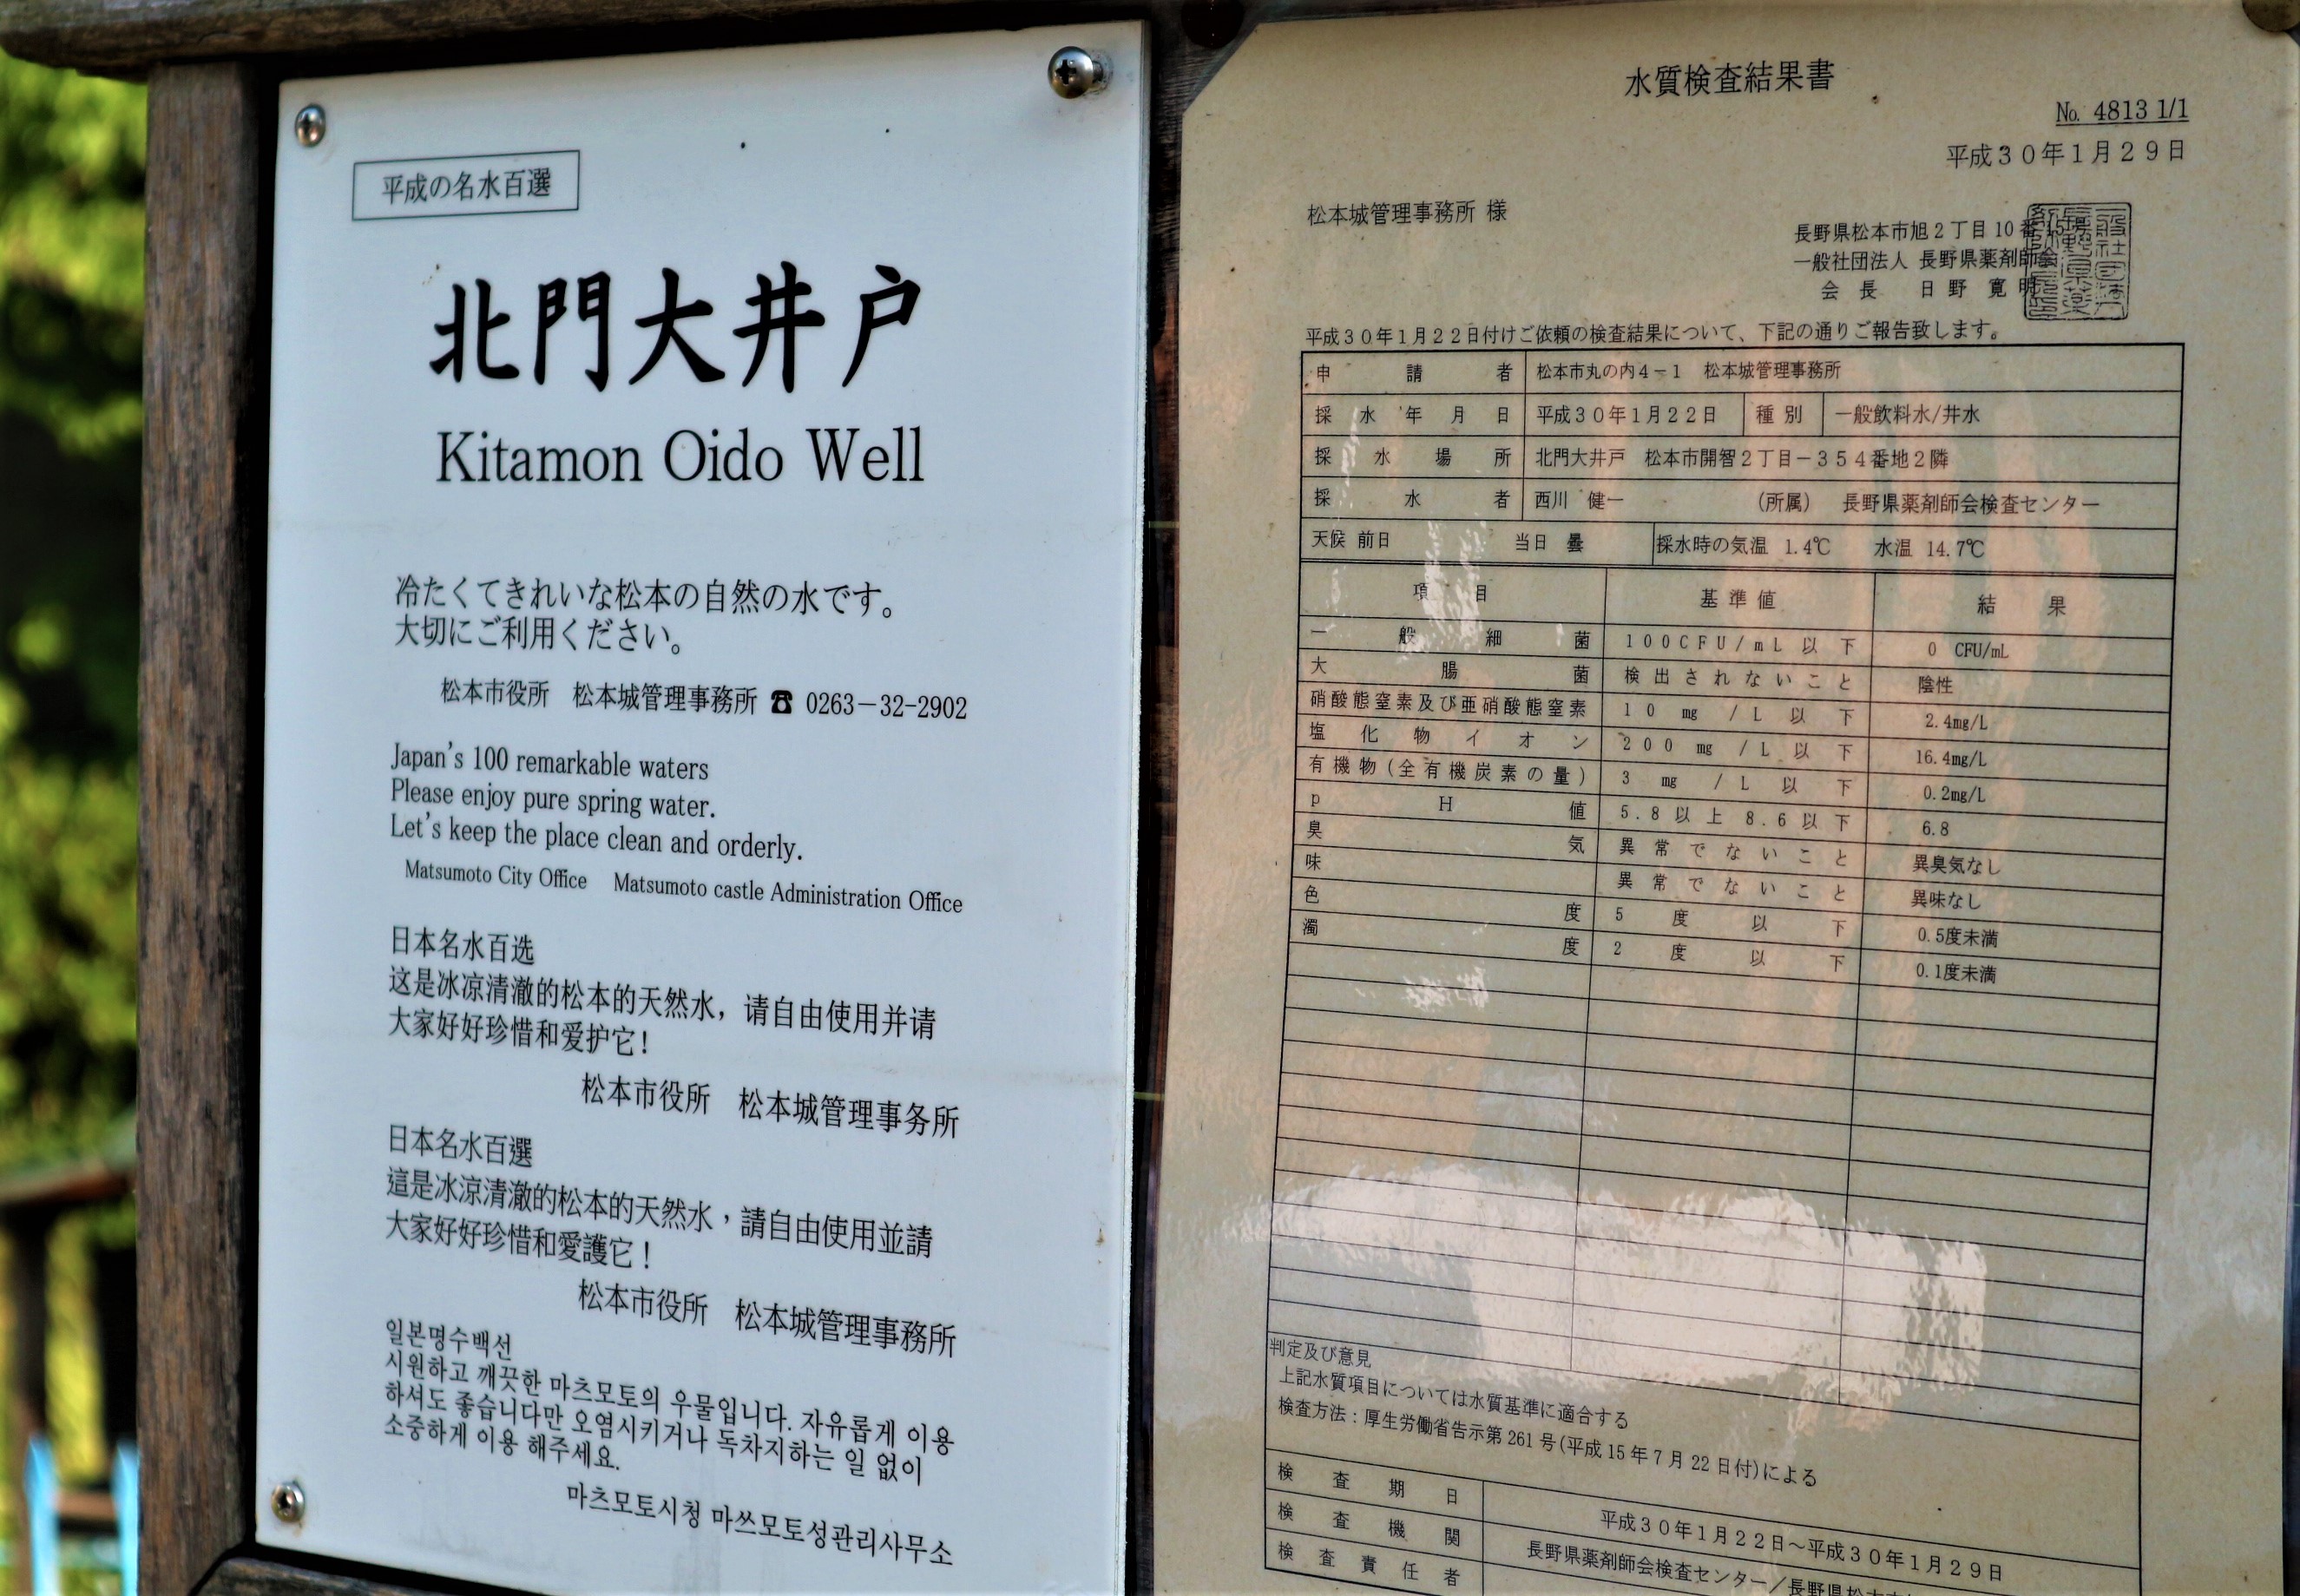 平成の名水百選
北門大井戸
Kitamon Oido Well
冷たくてきれいな松本の自然の水です。
大切にご利用ください。
松本市役所 松本城管理事務所 ☎ 0263-32-2902
Japan's 100 remarkable waters
Please enjoy pure spring water.
Let's keep the place clean and orderly.
Matsumoto City Office Matsumoto castle Administration Office
日本名水百选
这是冰凉清澈的松本的天然水，请自由使用并请
大家好好珍惜和爱护它！
松本市役所 松本城管理事务所
日本名水百選
這是冰涼清澈的松本的天然水，請自由使用並請
大家好好珍惜和愛護它！
松本市役所 松本城管理事務所
일본명수백선
시원하고 깨끗한 마츠모토의 우물입니다. 자유롭게 이용
하셔도 좋습니다만 오염시키거나 독차지하는 일 없이
소중하게 이용 해주세요.
마츠모토시청 마쓰모토성관리사무소
水質検査結果書
No. 4813 1/1
平成３０年１月２９日
松本城管理事務所 様
長野県松本市旭２丁目10番
一般社団法人 長野県薬剤師会
会長 日野 寛明
平成３０年１月２２日付けご依頼の検査結果について、下記の通りご報告致します。
申請者 松本市丸の内４－１ 松本城管理事務所
採水年月日 平成３０年１月２２日 種別 一般飲料水/井水
採水場所 北門大井戸 松本市開智２丁目－３５４番地２隣
採水者 西川 健一 （所属） 長野県薬剤師会検査センター
天候 前日 当日 曇 採水時の気温 1.4℃ 水温 14.7℃
項目 基準値 結果
一般細菌 100CFU/mL以下 0 CFU/mL
大腸菌 検出されないこと 陰性
硝酸態窒素及び亜硝酸態窒素 10 mg/L以下 2.4mg/L
塩化物イオン 200 mg/L以下 16.4mg/L
有機物(全有機炭素の量) 3 mg/L以下 0.2mg/L
pH値 5.8以上8.6以下 6.8
臭気 異常でないこと 異臭気なし
味 異常でないこと 異味なし
色度 5度以下 0.5度未満
濁度 2度以下 0.1度未満
判定及び意見
上記水質項目については水質基準に適合する
検査方法：厚生労働省告示第261号(平成15年7月22日付)による
検査期日 平成３０年１月２２日～平成３０年１月２９日
検査機関 長野県薬剤師会検査センター／長野県松本
検査責任者